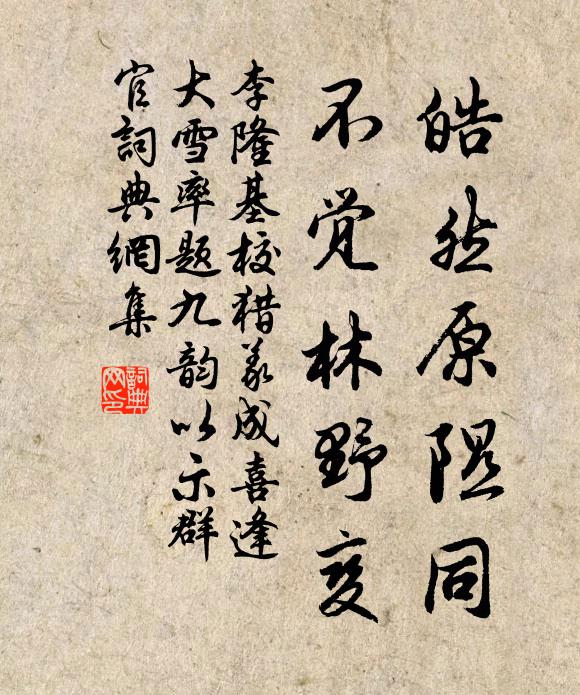 皓然原隰同
不觉林野变
李隆基校猎义成喜逢
大雪率题九韵以示群
官詞典網集
詞典网印